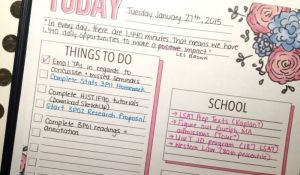 TODAY
Tuesday January 27th, 2015
"In every day, there are 1,440 minutes. That means we have
1,440 daily opportunities to make a positive impact."
LES BROWN
THINGS TO DO
Email TAs in regards to
concussion + missed seminars
Complete Stats 3P01 Homework
Complete HIST 1F90 tutorials
(Download SketchUp)
Start 3P02 Research Proposal
Complete 3P01 readings +
annotation
SCHOOL
LSAT Prep Texts (Kaplan?)
Figure out Guelph MA
admissions
U of T JD program (167 LSAT)
Western Law